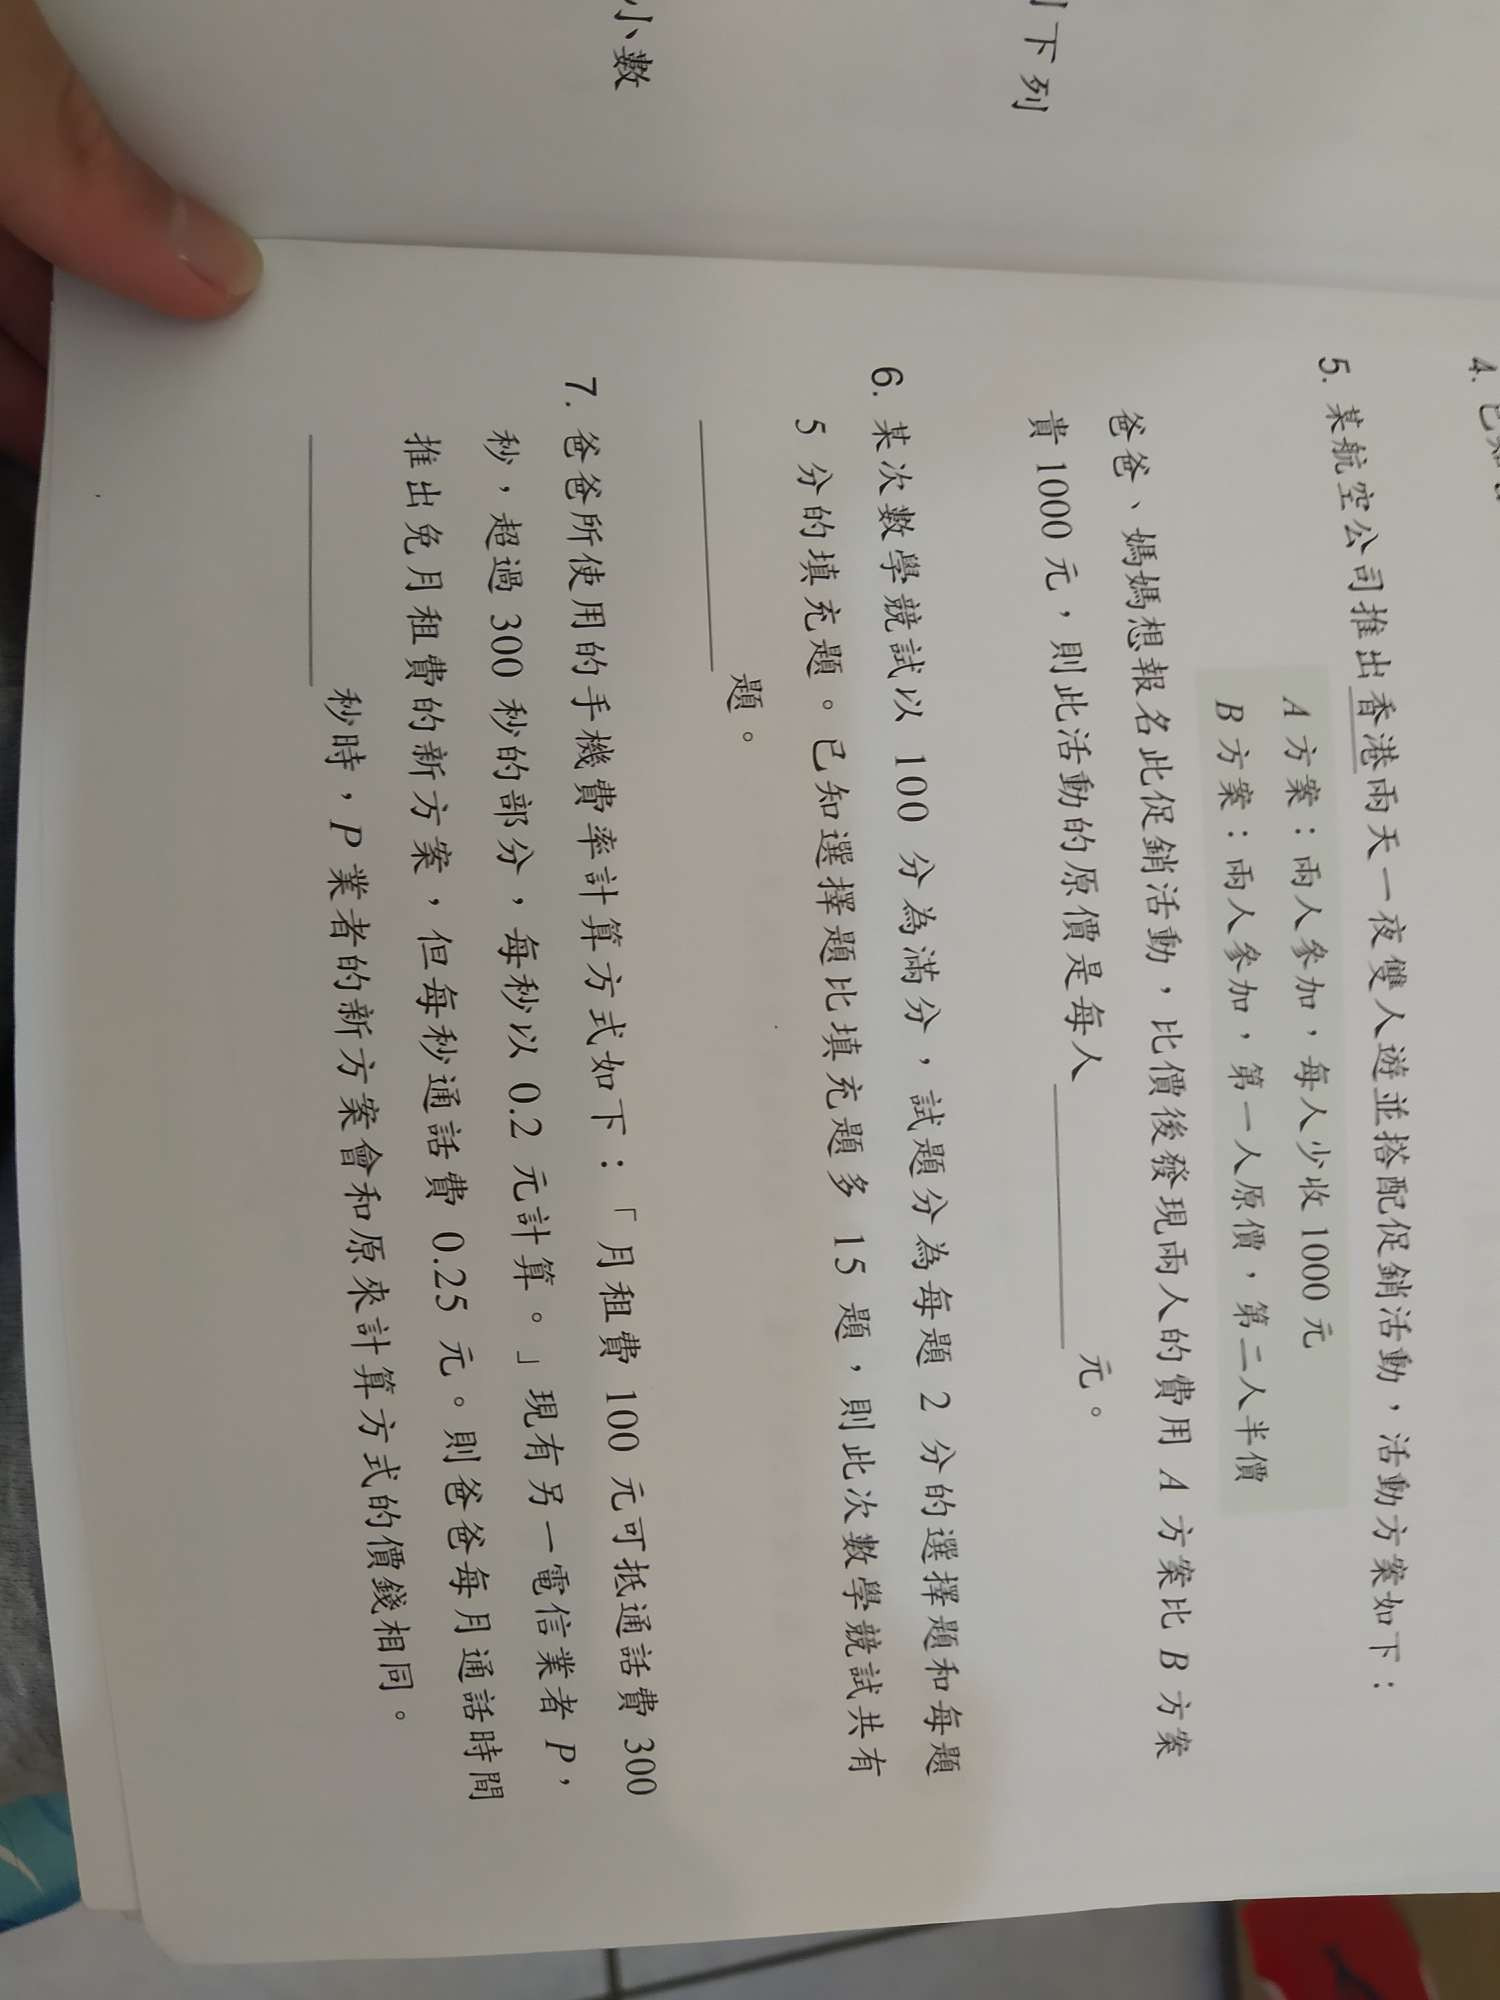 下列
小數
4. 已知
5. 某航空公司推出香港兩天一夜雙人遊並搭配促銷活動，活動方案如下：
A 方案：兩人參加，每人少收 1000 元
B 方案：兩人參加，第一人原價，第二人半價
爸爸、媽媽想報名此促銷活動，比價後發現兩人的費用 A 方案比 B 方案
貴 1000 元，則此活動的原價是每人 ________ 元。
6. 某次數學競試以 100 分為滿分，試題分為每題 2 分的選擇題和每題
5 分的填充題。已知選擇題比填充題多 15 題，則此次數學競試共有
________ 題。
7. 爸爸所使用的手機費率計算方式如下：「月租費 100 元可抵通話費 300
秒，超過 300 秒的部分，每秒以 0.2 元計算。」現有另一電信業者 P，
推出免月租費的新方案，但每秒通話費 0.25 元。則爸爸每月通話時間
________ 秒時，P 業者的新方案會和原來計算方式的價錢相同。